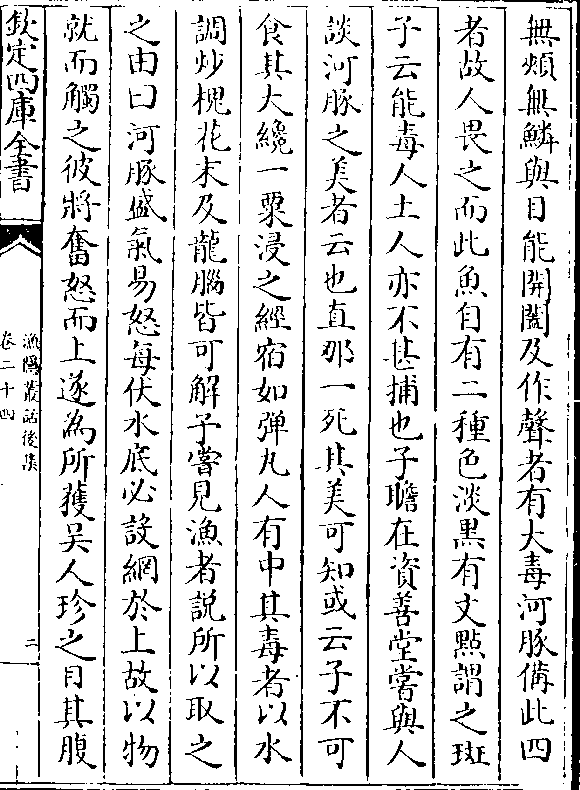 無頰無鱗與目能開闔及作聲者有大毒河豚備此四
者故人畏之而此魚自有二種色淡黒有文點謂之斑
子云能毒人土人亦不甚捕也子瞻在資善堂嘗與人
談河豚之美者云也直那一死其美可知或云子不可
食其大纔一粟浸之經宿如彈丸人有中其毒者以水
調炒槐花末及龍腦皆可解子嘗見漁者説所以取之
之由曰河豚盛氣易怒每伏水底必設網於上故以物
就而觸之彼將奮怒而上遂為所獲吴人珍之目其腹
欽定四庫全書
漁隱叢話後集
卷二十四
二